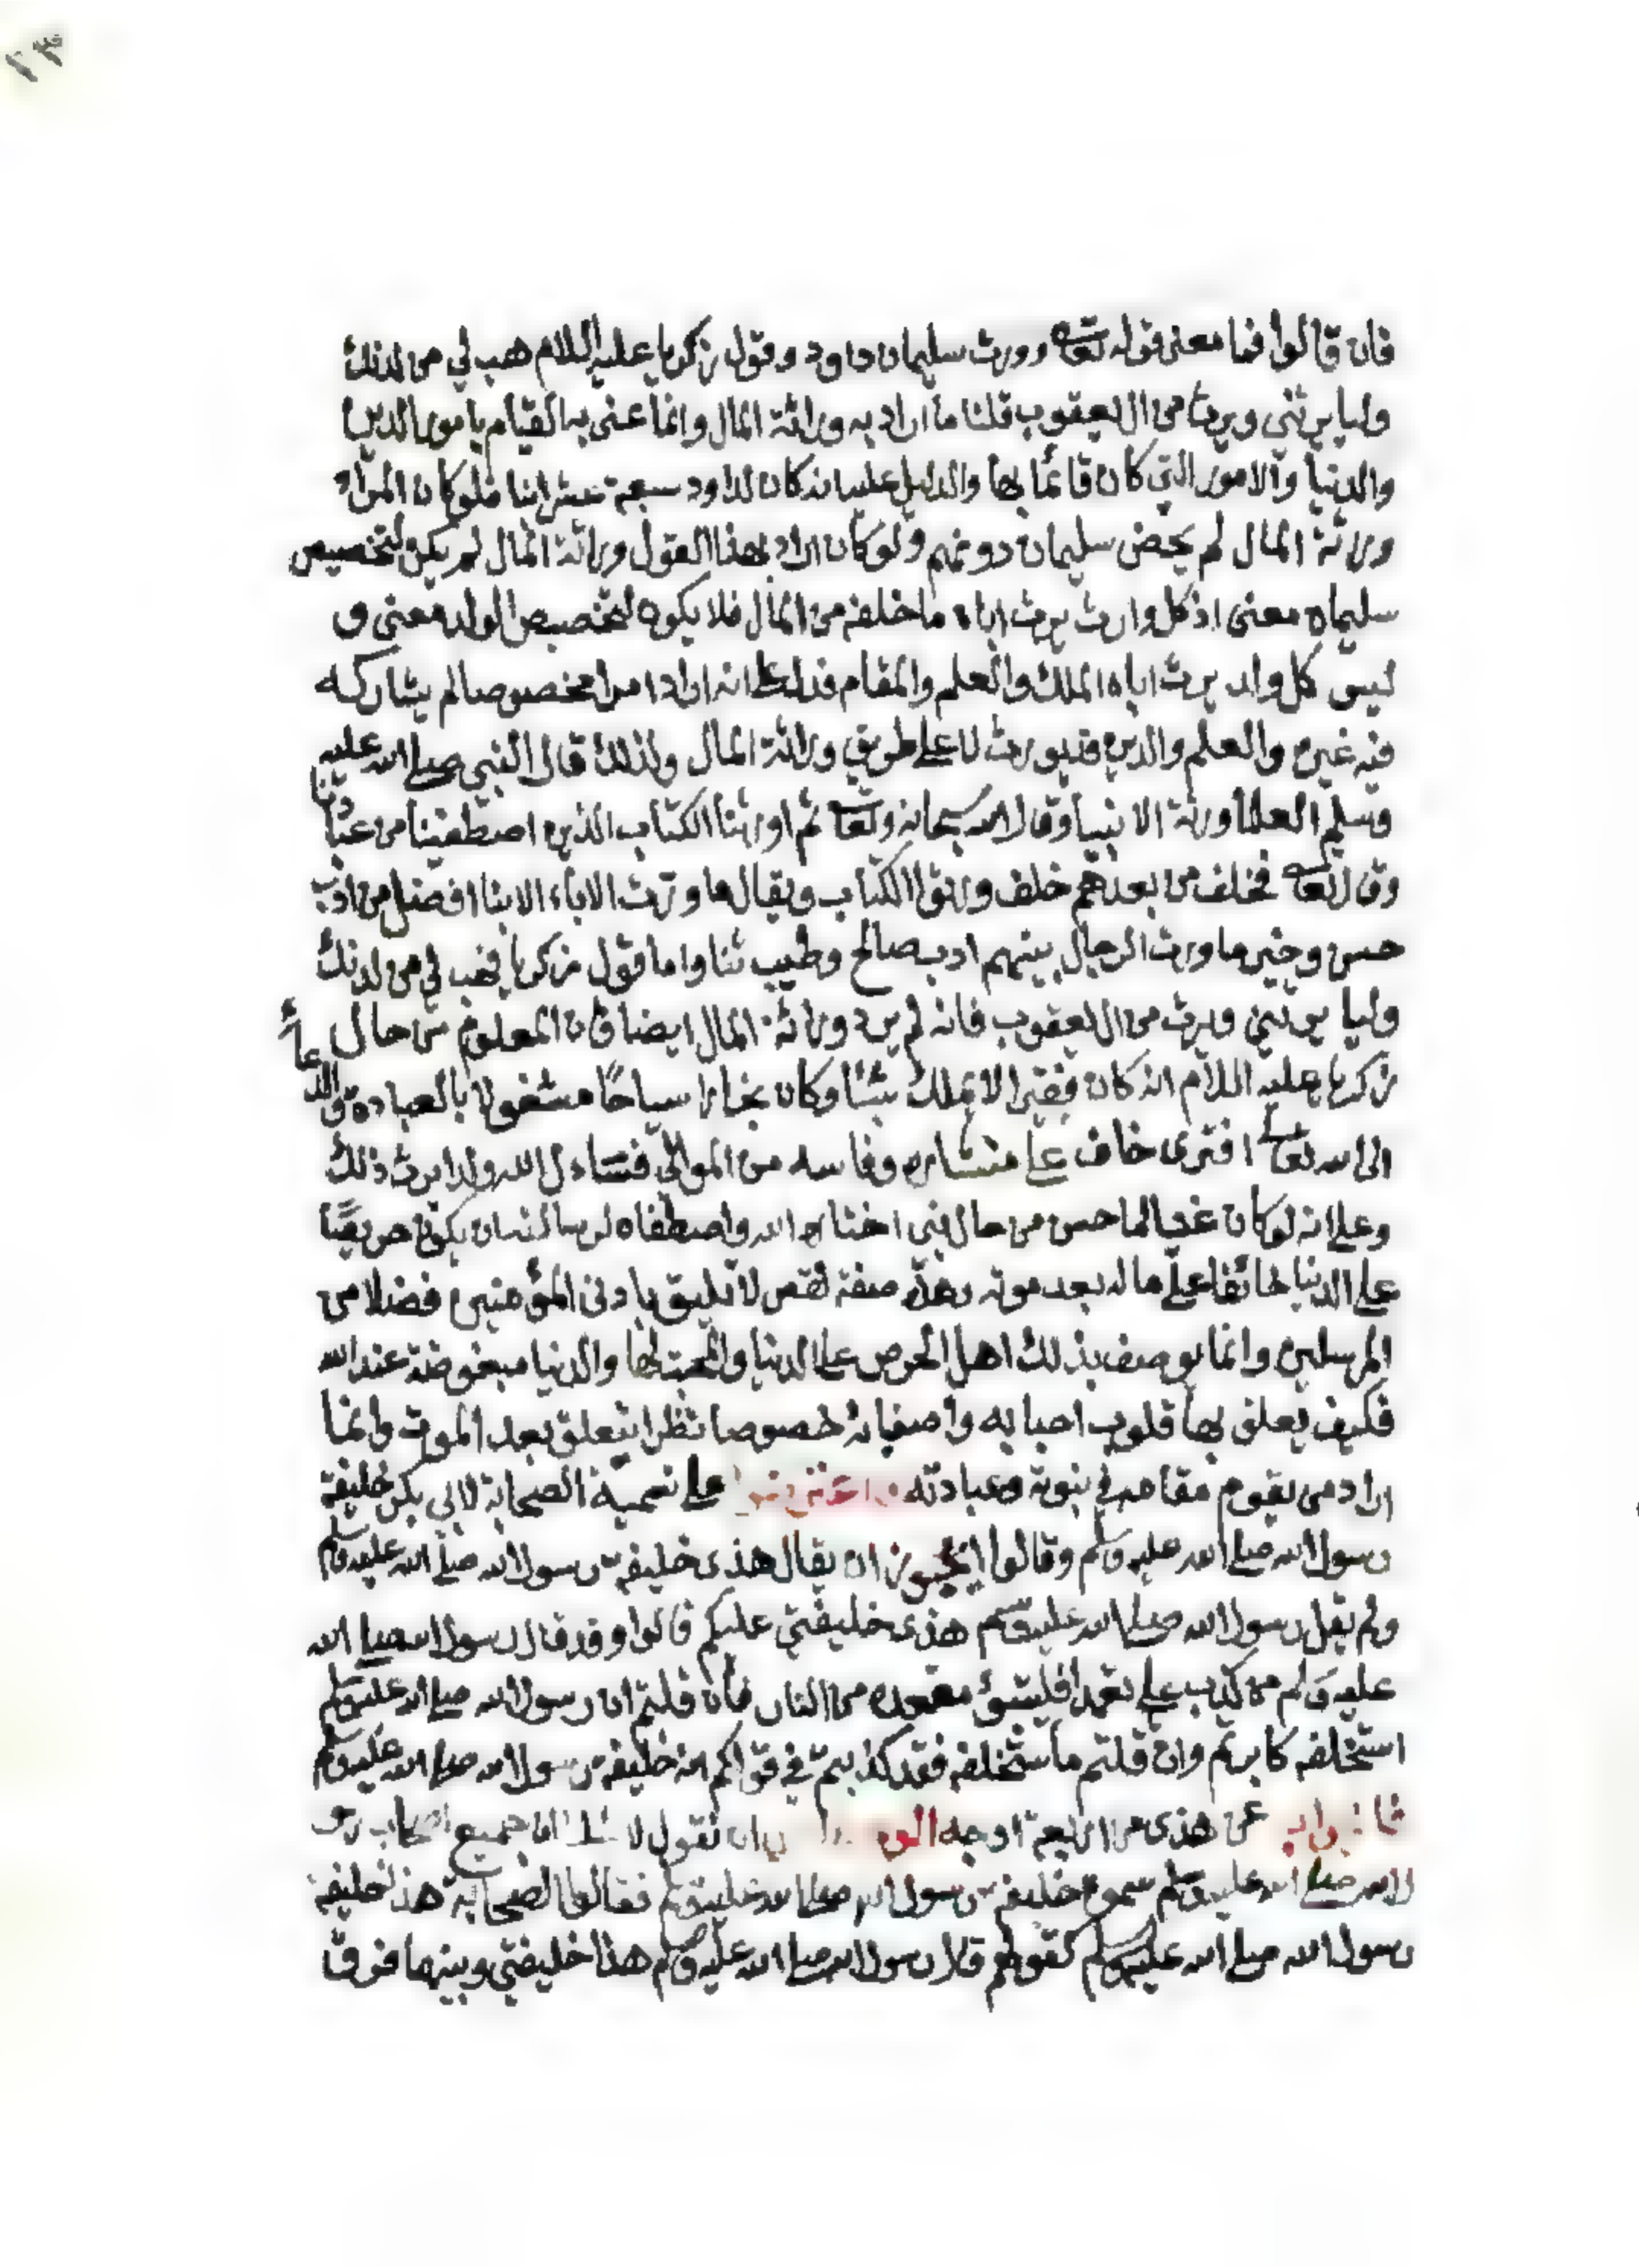 ٢٣
فان قالوا فما معنى قوله تعا وورث سليمان داود وقول زكريا عليه السلام هب لي من لدنك
وليا يرثني ويرث من ال يعقوب قلنا ما اراد به وراثة المال وانما عنى به القيام بامور الدين
والدنيا والامور التي كان قائما بها والدليل عليه انه كان لداود سبعة عشر ابنا فلو كان المراد
وراثة المال لم يخص سليمان دونهم ولو كان اراد بهذا القول وراثة المال لم يكن لتخصيص
سليمان معنى اذ كل وارث يرث اباه ما خلفه من المال فلا يكون لتخصيص الولد معنى و
ليس كل ولد يرث اباه الملك والعلم والمقام فدل على انه اراد امرا مخصوصا لم يشاركه
فيه غيره والعلم والدين قد يورث لا على طريق وراثة المال ولذلك قال النبي صلى الله عليه
وسلم العلما ورثة الانبيا وقال الله سبحانه وتعا ثم اورثنا الكتاب الذين اصطفينا من عبادنا
وقال تعا فخلف من بعدهم خلف ورثوا الكتاب ويقال ما ورثت الاباء الابنا افضل من ادب
حسن وخير ما ورث الرجال بينهم ادب صالح وطيب ثنا واما قول زكريا فهب لي من لدنك
وليا يرثني ويرث من ال يعقوب فانه لم يرد وراثة المال ايضا فان المعلوم من حال
زكريا عليه السلام انه كان فقيرا لا يملك شيئا وكان نجارا سياحا مشغولا بالعبادة والدعاء
الى الله تعالى افترى خاف على منشاره وفاسه من الموالي فساءل الله ولدا يرث ذلك
وعلى انه لو كان من حال نبي اختاره الله واصطفاه لرسالته ان يكون حريصا
على الدنيا خائفا على ماله بعد موته وهذه صفة نقص لا تليق بادنى المؤمنين فضلا من
المرسلين وانما يوصف بذلك اهل الحرص على الدنيا والمحبة لها والدنيا مبغوضة عند الله
فكيف يعلق بها قلوب احبابه واصفيائه خصوصا نظرا يتعلق بعد الموت وانما
اراد من يقوم مقامه في نبوته وعبادته واعترضوا على تسمية الصحابة لابي بكر خليفة
رسول الله صلى الله عليه وسلم وقالوا ايجوز ان يقال هذى خليفة رسول الله صلى الله عليه وسلم
ولم يقل رسول الله صلى الله عليه وسلم هذى خليفتي عليكم قالوا وقد قال رسول الله صلى الله
عليه وسلم من كذب علي تعمدا فليتبوئ مقعده من النار فان قلتم ان رسول الله صلى الله عليه وسلم
استخلفه كابرتم وان قلتم ما استخلفه فقد كذبتم في قولكم انه خليفة رسول الله صلى الله عليه وسلم
عن هذى من اربعة اوجه ان نقول لا ان جميع اصحاب رسو
ل الله صلى الله عليه وسلم سموه خليفة رسول الله صلى الله عليه وسلم فقالوا الصحابة هذا خليفة
رسول الله صلى الله عليه وسلم كقولهم قال رسول الله صلى الله عليه وسلم هذا خليفتي وبينهما فرق